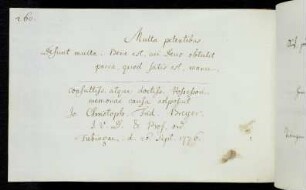 160.
Multa petentibus
Desunt multa. Bene est, cui Deus obtulit
parca, quod satis est, manu.
consultiss. atque doctiss. Possessori
memoriae causa adposuit
Jo. Christoph. Frid. Breyer.
J. V. D. & Prof.
Tubingae, d. Sept. 1776.